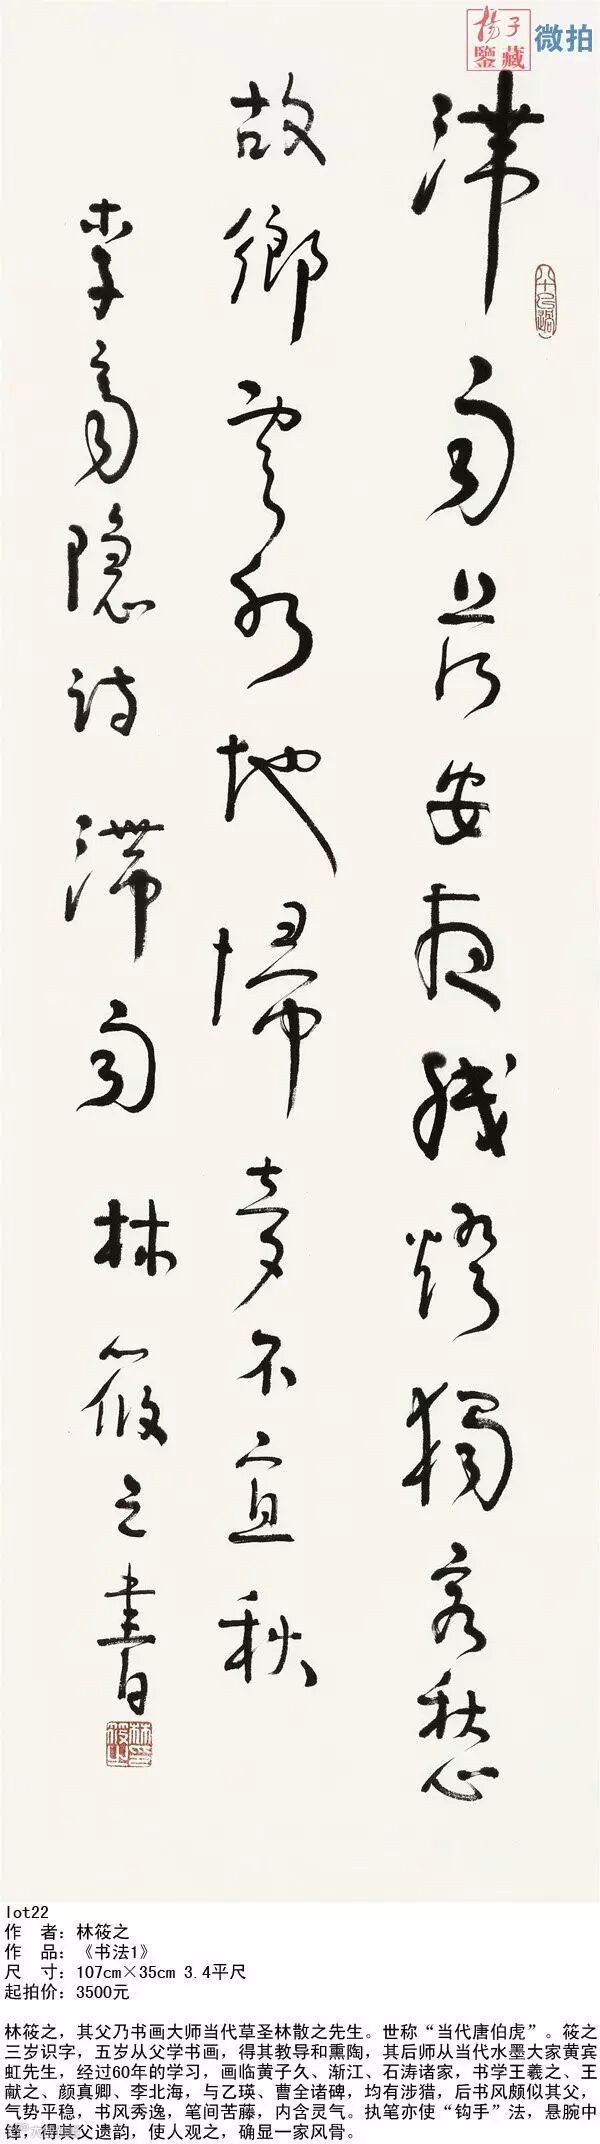 揚子鑒藏 微拍
滯雨長安夜殘燈獨客愁
故鄉雲水地歸夢不宜秋
李商隐詩滯雨 林筱之書
lot22
作 者：林筱之
作 品：《书法1》
尺 寸：107cm×35cm 3.4平尺
起拍价：3500元
林筱之，其父乃书画大师当代草圣林散之先生。世称“当代唐伯虎”。筱之
三岁识字，五岁从父学书画，得其教导和熏陶，其后师从当代水墨大家黄宾
虹先生，经过60年的学习，画临黄子久、渐江、石涛诸家，书学王羲之、王
献之、颜真卿、李北海，与乙瑛、曹全诸碑，均有涉猎，后书风颇似其父，
气势平稳，书风秀逸，笔间苦藤，内含灵气。执笔亦使“钩手”法，悬腕中
锋，得其父遗韵，使人观之，确显一家风骨。